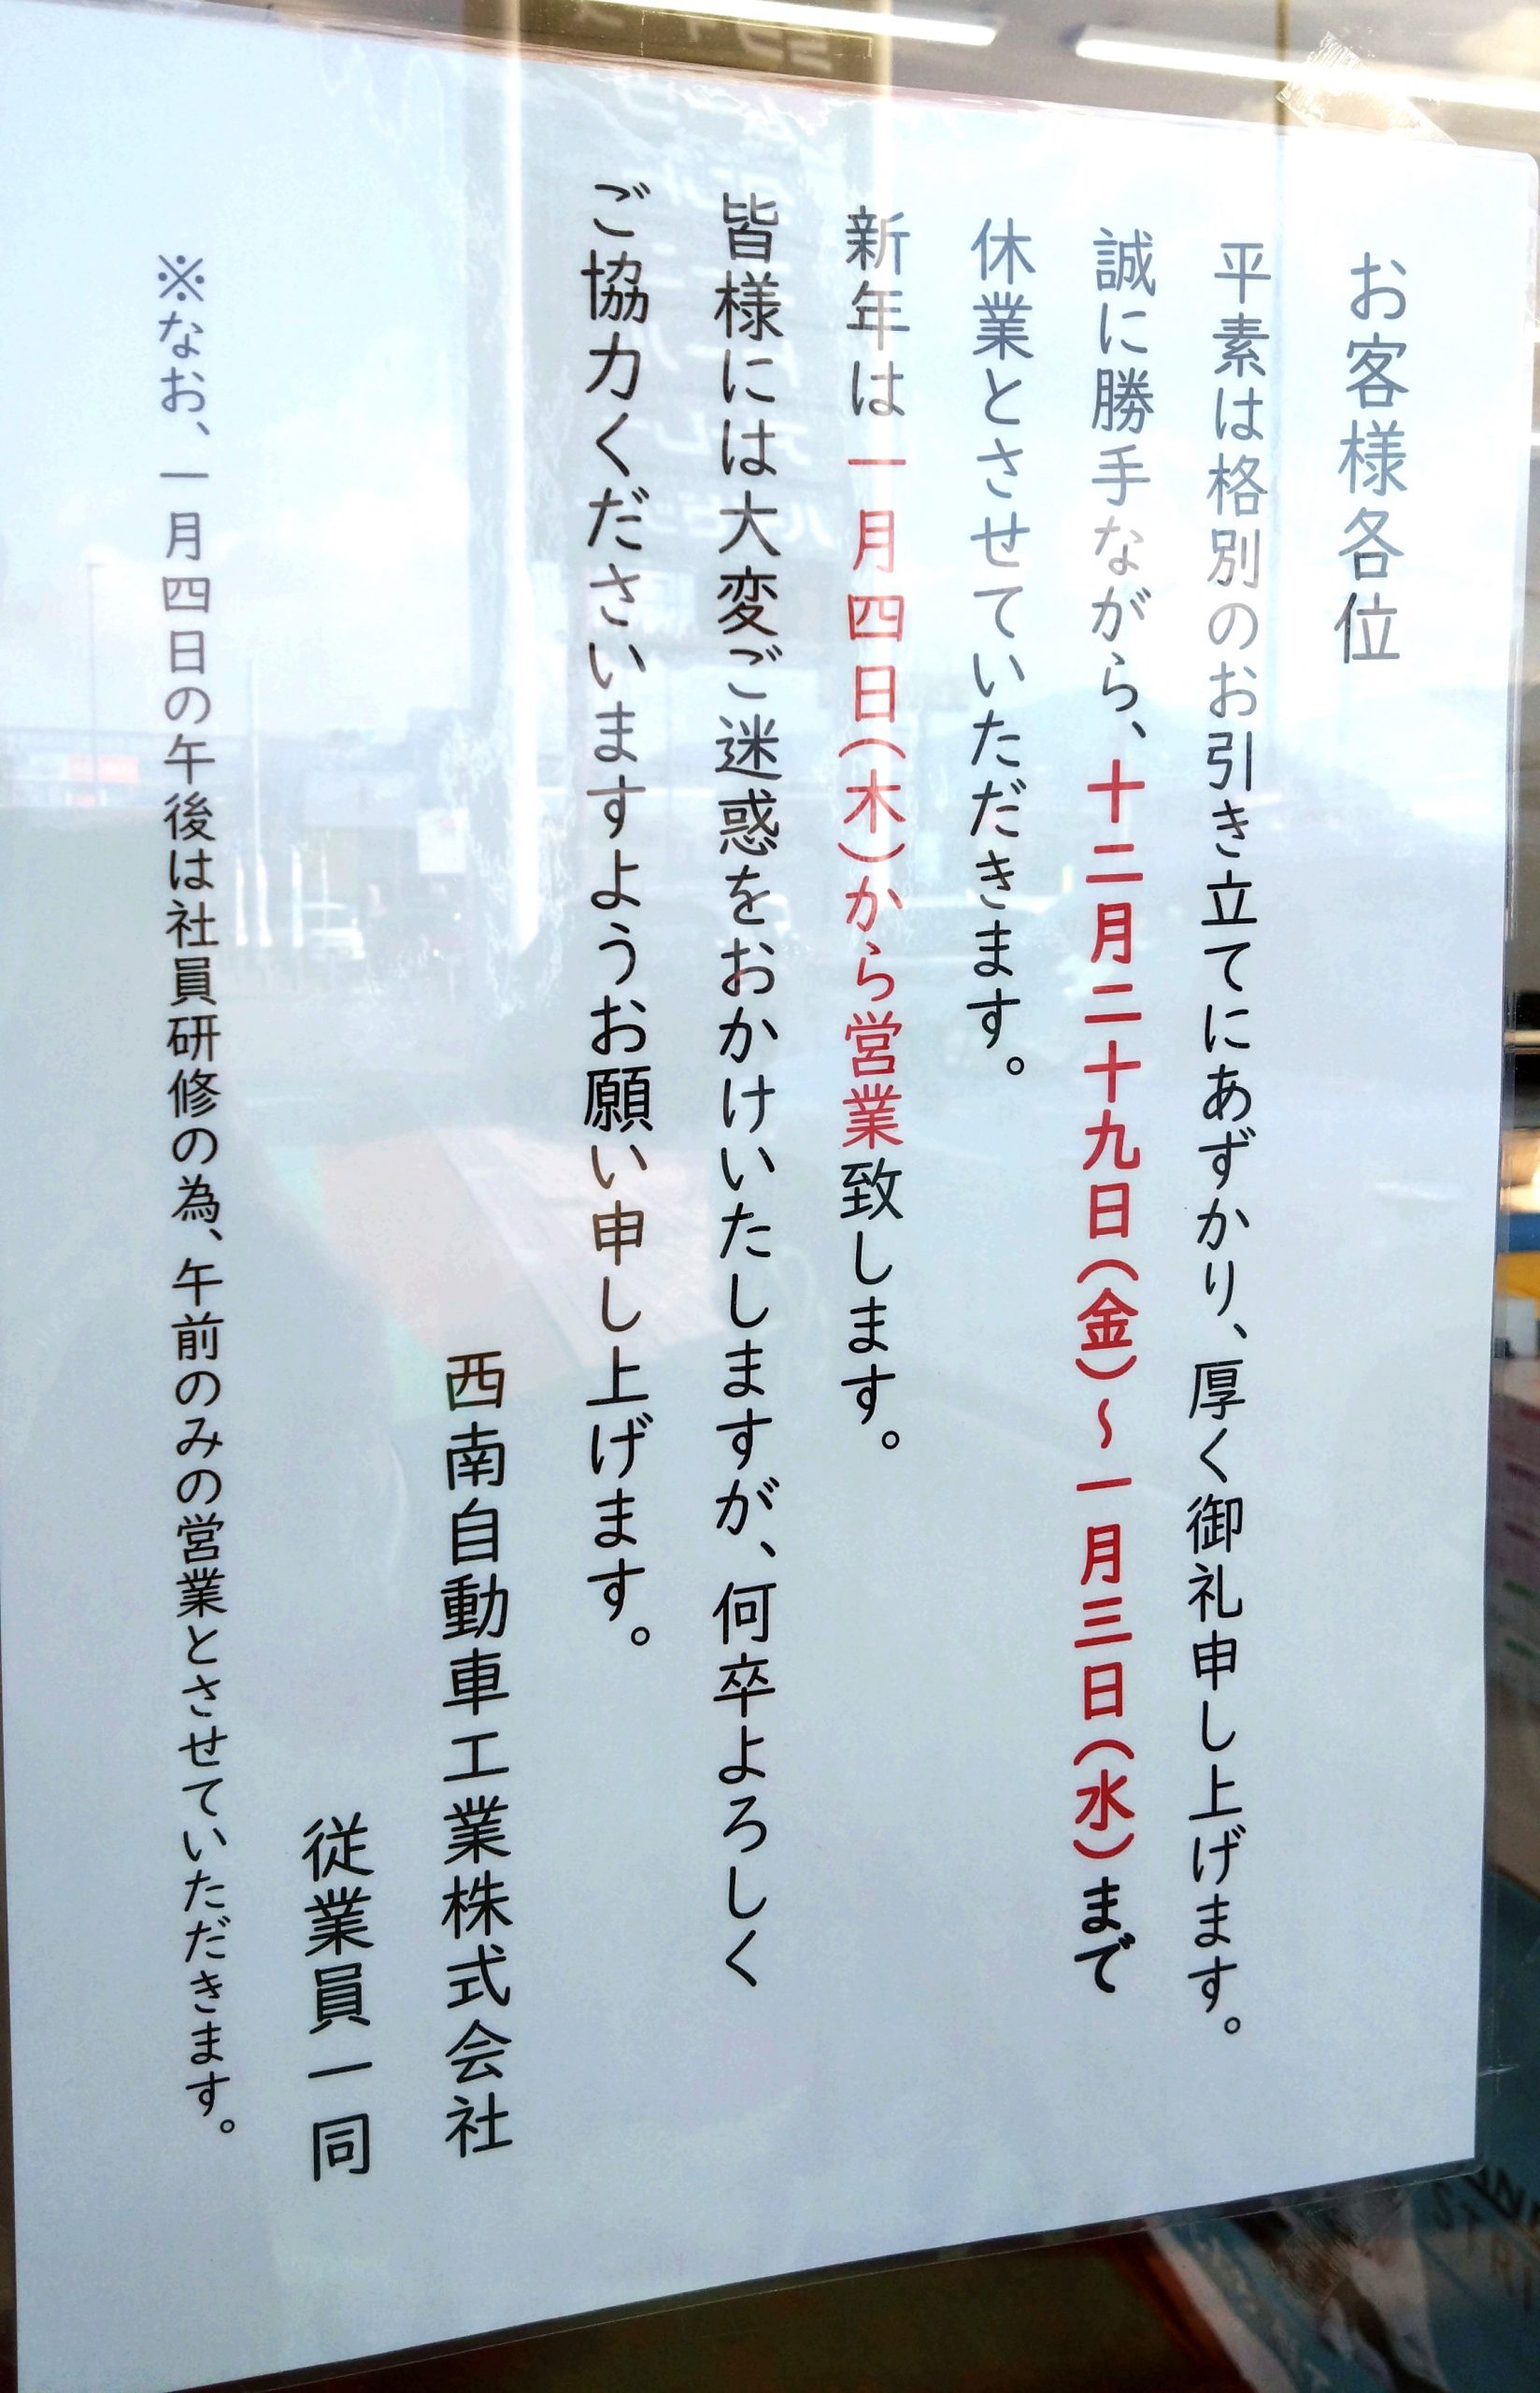 お客様各位
平素は格別のお引き立てにあずかり、厚く御礼申し上げます。
誠に勝手ながら、十二月二十九日(金)～一月三日(水)まで
休業とさせていただきます。
新年は一月四日(木)から営業致します。
皆様には大変ご迷惑をおかけいたしますが、何卒よろしく
ご協力くださいますようお願い申し上げます。
西南自動車工業株式会社
従業員一同
※なお、一月四日の午後は社員研修の為、午前のみの営業とさせていただきます。